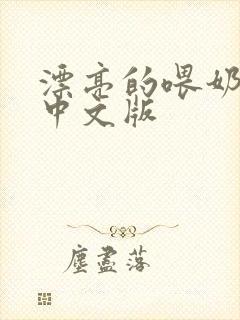 漂亮的喂奶
中文版
塵盡落